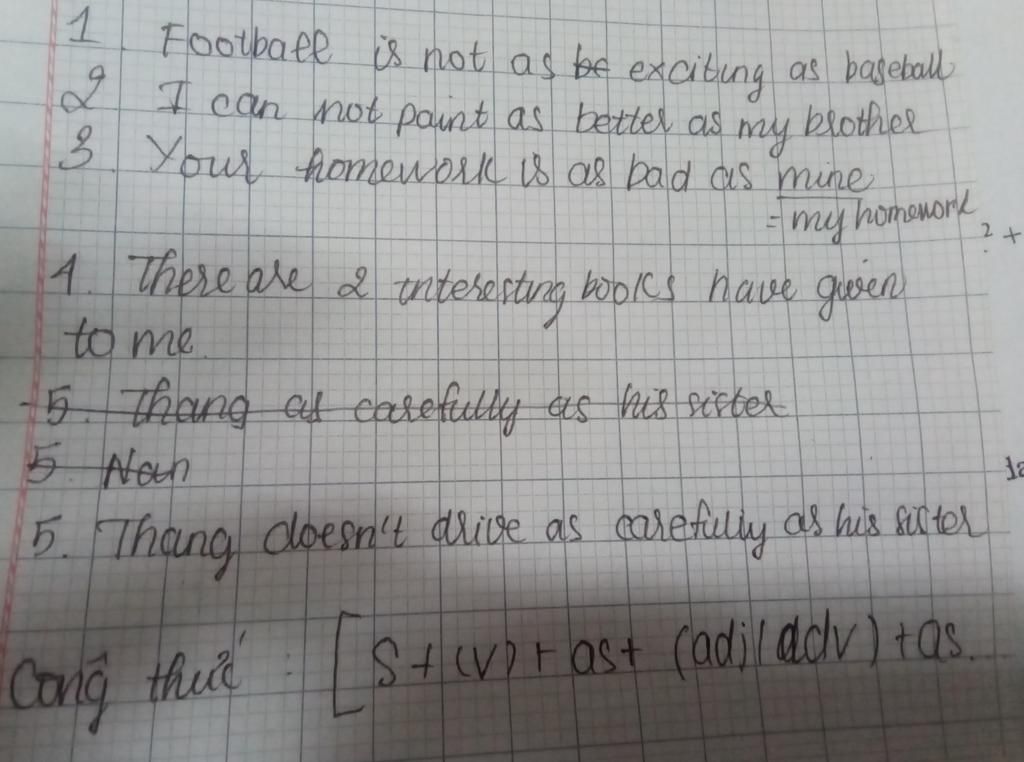 1. Football is not as be exciting as baseball
2 I can not paint as better as my brother
3. Your homework is as bad as mine
= my homework
? +
4. There are 2 interesting books have given
to me.
5. Thang as carefully as his sister
5. Nan
5. Thang doesn't drive as carefully as his sister
Công thức : [ S + (V) + as + (adj/adv) + as.